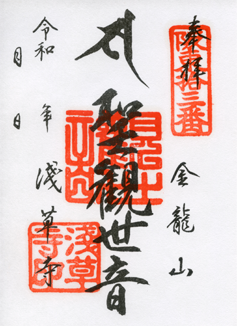 奉拝
坂東第十三番
金龍山
聖観世音
浅草寺
令和 年
月 日
浅草寺